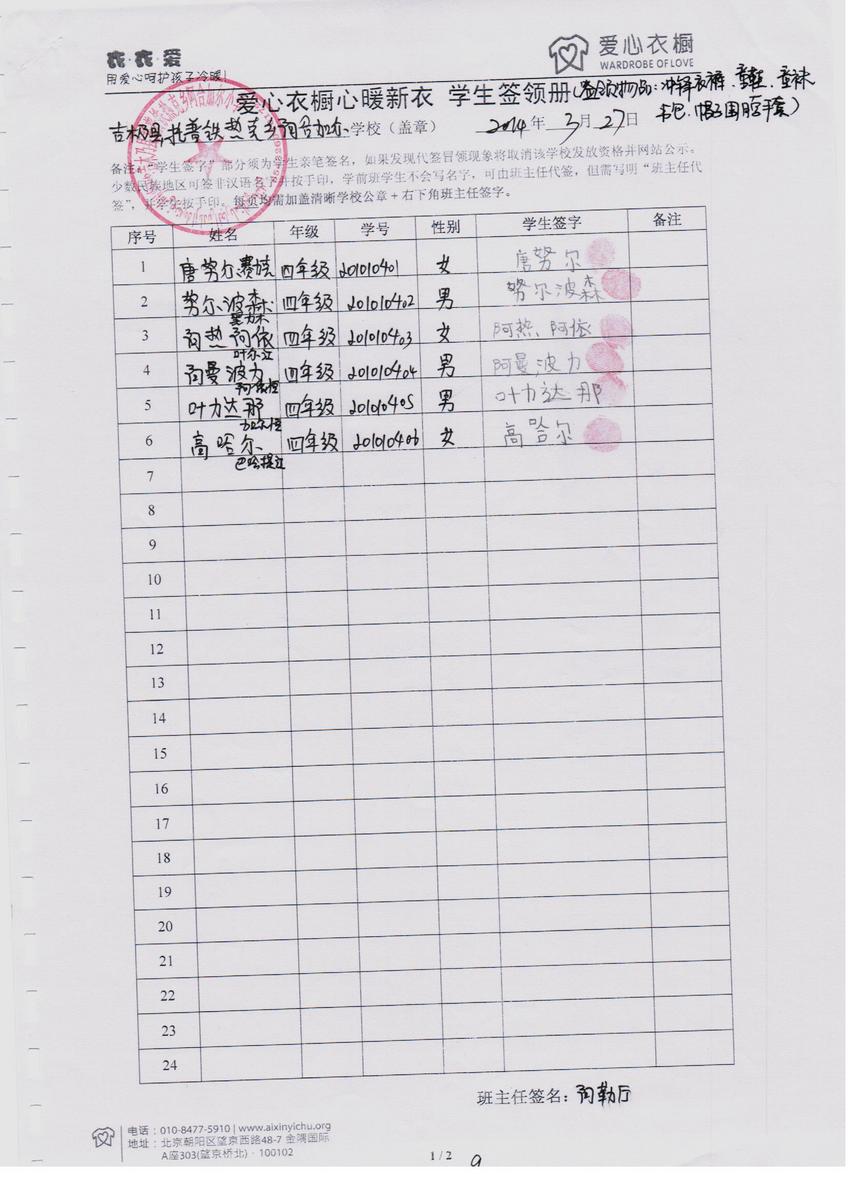 衣·衣·爱
用爱心呵护孩子冷暖!
爱心衣橱
WARDROBE OF LOVE
爱心衣橱心暖新衣 学生签领册(签领物品:冲锋衣裤、童鞋、童袜
书包、帽子围脖手套)
吉木乃县托普铁热克乡阿合加尔学校(盖章) 2014年3月27日
备注:“学生签字”部分须为学生亲笔签名,如果发现代签冒领现象将取消该学校发放资格并网站公示。
少数民族地区可签非汉语名字并按手印,学前班学生不会写名字,可由班主任代签,但需写明“班主任代
签”,并学生按手印。每页均需加盖清晰学校公章+右下角班主任签字。
序号 姓名 年级 学号 性别 学生签字 备注
1 唐努尔赛坎 四年级 201010401 女 唐努尔
2 努尔波森· 四年级 201010402 男 努尔波森
3 阿热阿依 四年级 201010403 女 阿热、阿依
叶尔江
4 阿曼波力 四年级 201010404 男 阿曼波力
5 叶力达那 四年级 201010405 男 叶力达那
6 高哈尔 四年级 201010406 女 高哈尔
巴哈提江
7
8
9
10
11
12
13
14
15
16
17
18
19
20
21
22
23
24
班主任签名:阿勒厅
电话:010-8477-5910 | www.aixinyichu.org
地址:北京朝阳区望京西路48-7 金隅国际
A座303(望京桥北)· 100102
1 / 2
9